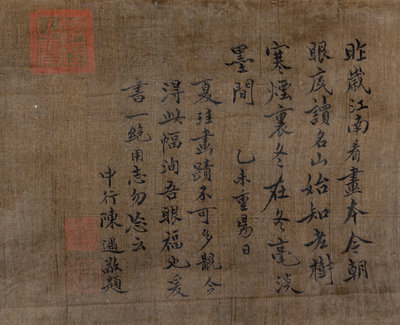 昨歲江南看畫本今朝
眼底讀名山始知老樹
寒煙裏冬在冬毫淡
墨間 乙未重昜日
夏珪畫蹟不可多觀今
得此幅洵吾眼福也爰
書一絕用志勿忘云
中行陳遇敬題